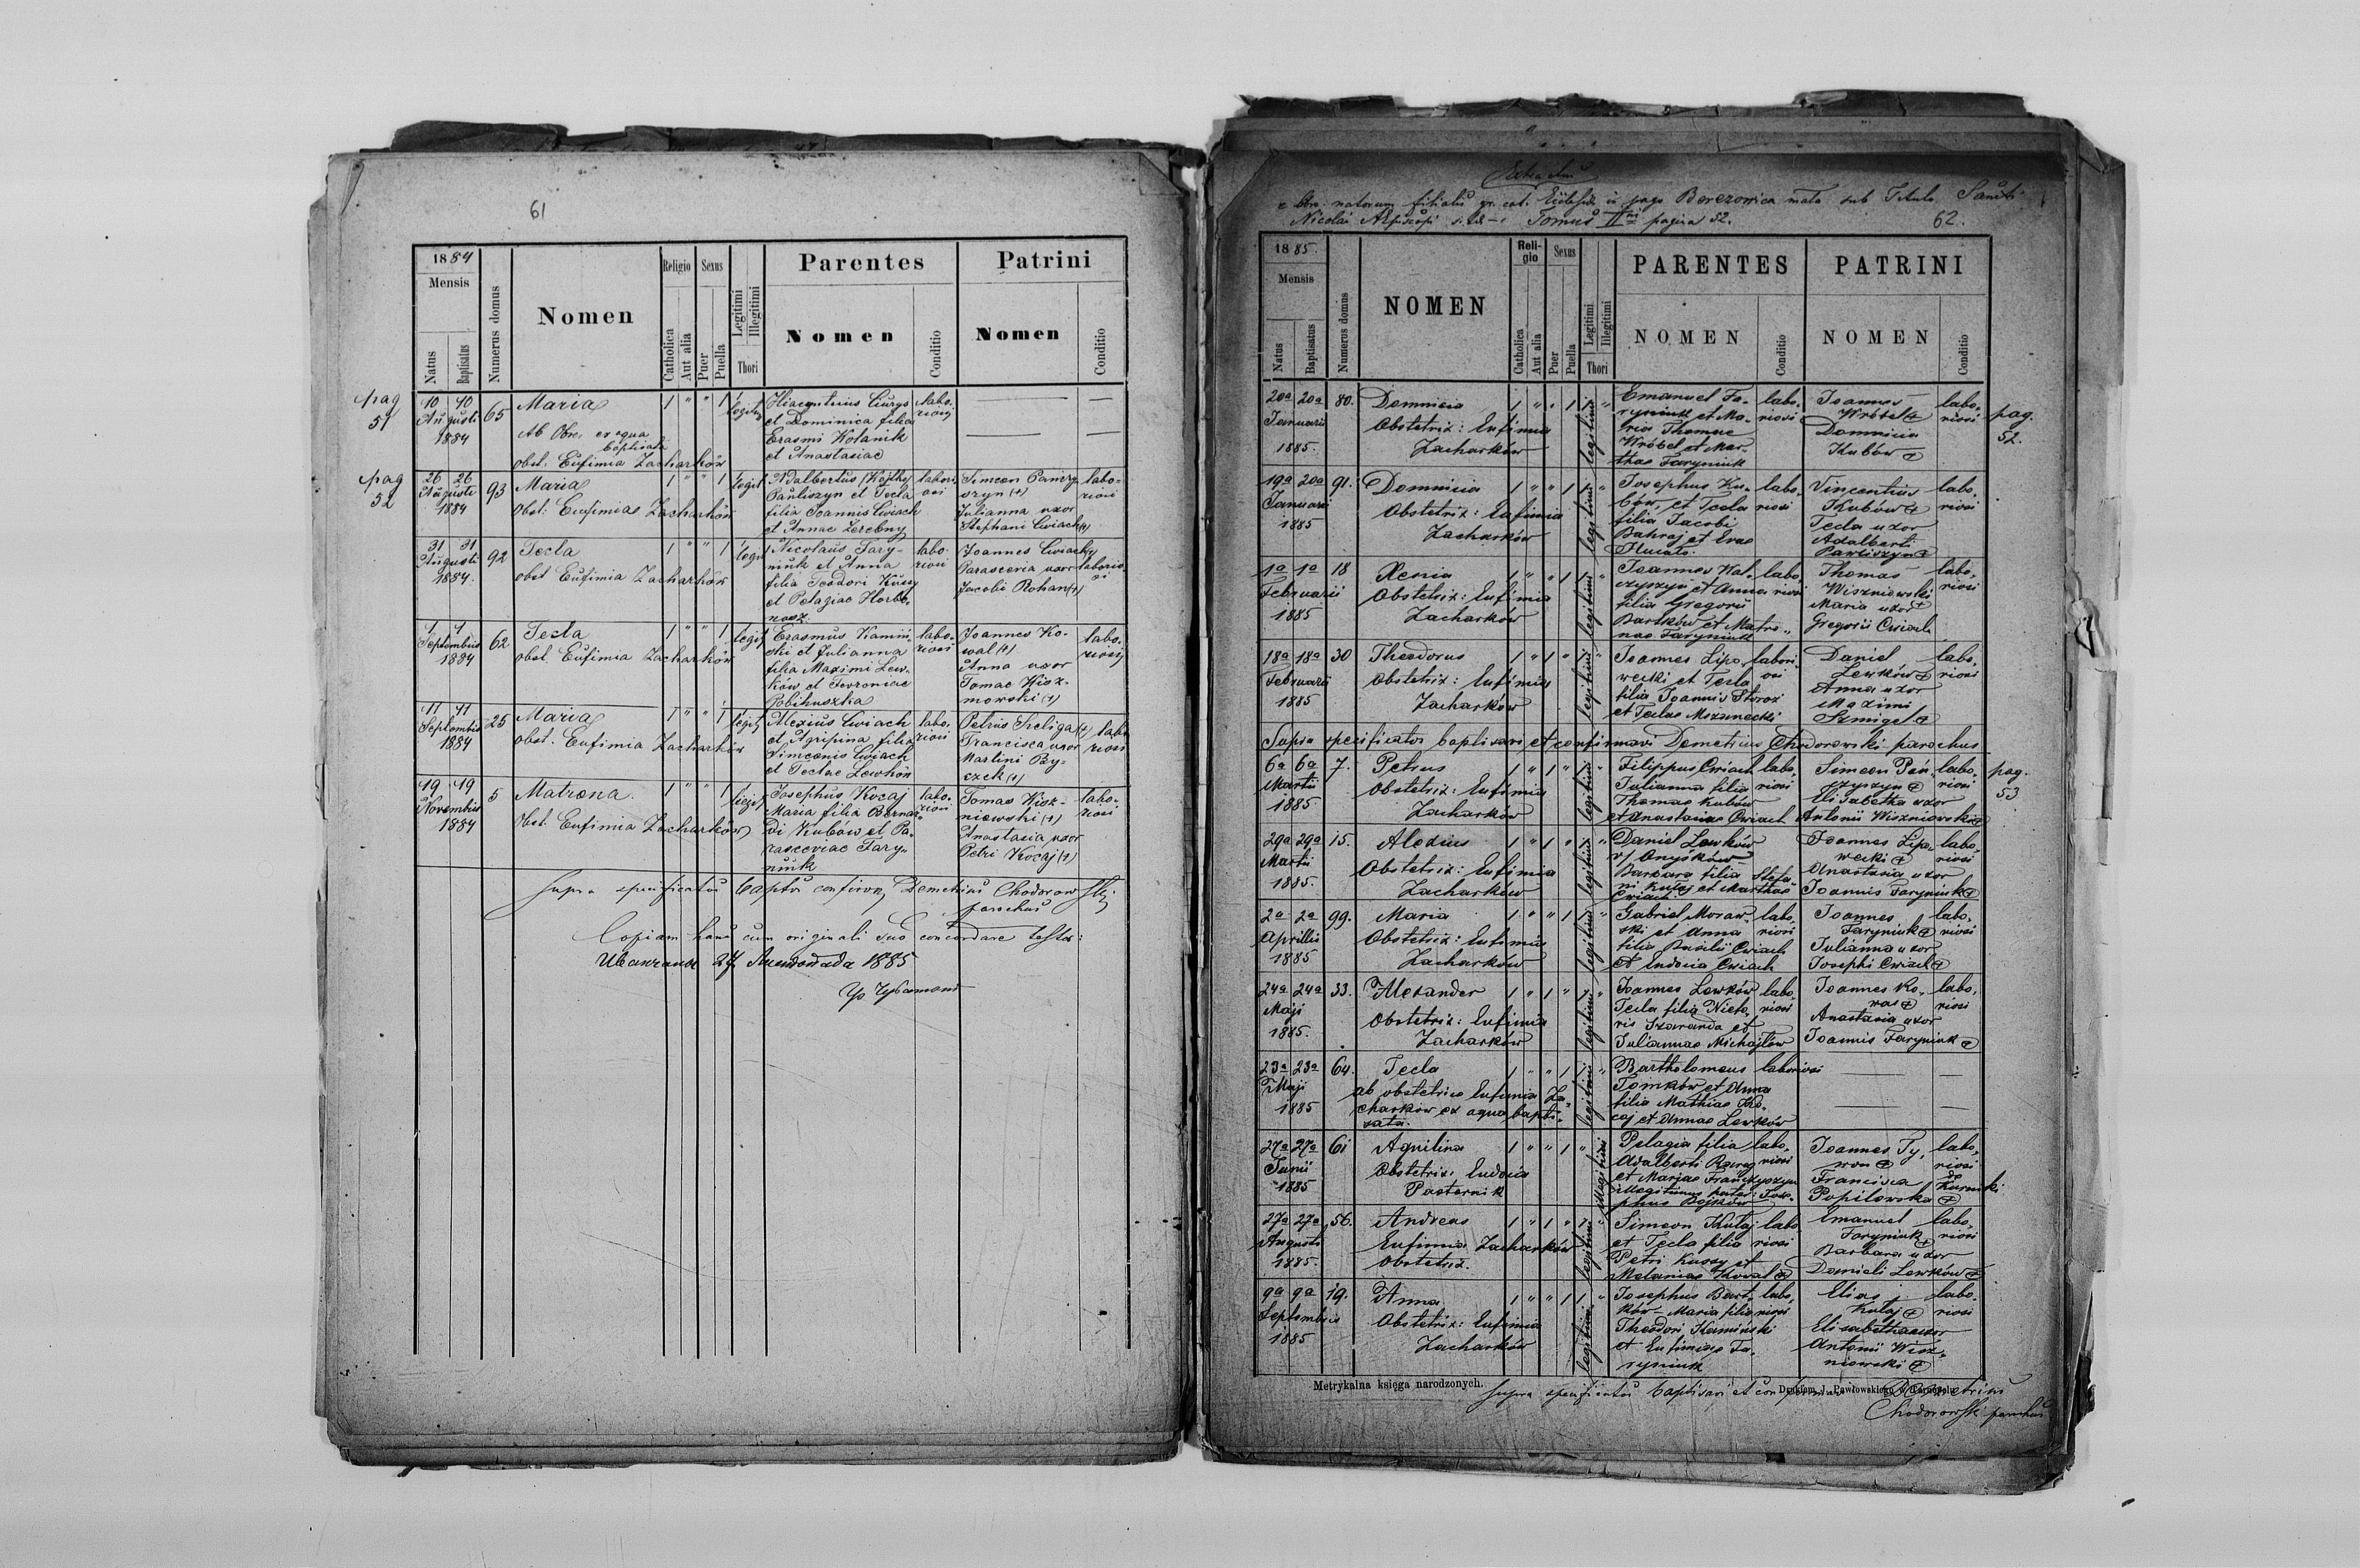 61
1884
Mensis
Natus
Baptisatus
Numerus domus
Nomen
Religio
Catholica
Aut alia
Sexus
Puer
Puella
Legitimi
Illegitimi
Thori
Parentes
Nomen
Conditio
Patrini
Nomen
Conditio
pag
51
10 10
Augusti
1884
65
Maria
Ab Obst. ex aqua
baptisata
obst. Eufimia Zacharków
1 " " 1
legit
et Dominica filia
Erasmi Kotanik
et Anastasiae
labo-
riosi
pag
52
26 26
Augusti
1884
93
Maria
Obst. Eufimia Zacharków
1 " " 1
legit
Adalbertus (Wojtko)
Pauliszyn et Tecla
filia Joannis Cwiach
et Annae Zerebny
labori
osi
Simeon Panczy
szyn (+)
Julianna uxor
Stephani Cwiach (+)
labo-
riosi
31 31
Augusti
1884.
92
Tecla
obst Eufimia Zacharków
1 " " 1
legit
Nicolaus Fary-
niuk et Anna
filia Teodori Kussy
et Pelagiae Horbo-
nosz
labo-
riosi
Joannes Cwiach (+)
Parascevia uxor
Jacobi Bohan (+)
laborio-
si
1 1
Septembris
1884
62
Tecla
obst. Eufimia Zacharków
1 " " 1
legit
Erasmus Kamiń-
ski et Julianna
filia Maximi Lew-
ków et Fevroniae
Pobihuszka
labo-
riosi
Joannes Ko-
wal (+)
Anna uxor
Tomae Wisz-
niowski (+)
labo-
riosi
11 11
Septembris
1884
25
Maria
obst. Eufimia Zacharków
1 " " 1
legit
Alexius Cwiach
et Agripina filia
Simeonis Cwiach
et Teclae Lewków
labo-
riosi
Petrus Szeliga (+)
Francisca uxor
Martini By-
czek (+)
labo-
riosi
19 19
Novembris
1884
5
Matrona
Obst. Eufimia Zacharków
1 " " 1
legit
Josephus Kocaj
Maria filia Bernar-
di Kubów et Pa-
rasceviae Fary-
niuk
labo-
riosi
Tomas Wisz-
niowski (+)
Anastasia uxor
Petri Kocaj (+)
labo-
riosi
Supra specificatos Demetrius Chodorowski
parochus
Copiam hanc cum originali suo concordare testor:
1885
e libro natorum filialis gr. cat. Ecclesiae in pago Berezowica mała sub Titulo Sancti
Nicolai Tomus II pagina 52.
62.
1885.
Mensis
Natus
Baptisatus
Numerus domus
NOMEN
Religio
Catholica
Aut alia
Sexus
Puer
Puella
Legitimi
Illegitimi
Thori
PARENTES
NOMEN
Conditio
PATRINI
NOMEN
Conditio
20a 20a
Januarii
1885.
80.
Domnicia
Obstetrix: Eufimia
Zacharków
1 " " 1
legitimi
Emanuel Fa-
ryniuk et Ma-
ria Thomae
Wróbel et Mar-
thae Faryniuk
labo-
riosi
Joannes
Wróbel +
Domnicia
Kubów +
labo-
riosi
pag.
52.
19a 20a
Januarii
1885
91.
Domnicia
Obstetrix: Eufimia
Zacharków
1 " " 1
legitimi
Josephus Ku-
bów, et Tecla
filia Jacobi
Bahraj et Evae
labo-
riosi
Vincentius
Kubów +
Tecla uxor
Adalberti
Pawliszyn +
labo-
riosi
1a 1a
Februarii
1885
18
Xenia
Obstetrix: Eufimia
Zacharków
1 " " 1
legitimi
filia Gregorii
Bartków et Matro-
nae Faryniuk
labo-
riosi
Thomas
Wiszniowski
Maria uxor +
Gregorii Cwiach
labo-
riosi
18a 18a
Februarii
1885
30
Theodorus
Obstetrix: Eufimia
Zacharków
1 " 1 "
legitimi
Joannes Lipo-
wecki et Tecla
filia Joannis Storoż
et Teclae Mozanecki
labori-
osi
Daniel
Lewków +
Anna uxor
Maximi
Szmigel +
labo-
riosi
Supra specificatos baptisavi et confirmavi Demetrius Chodorowski parochus
6a 6a
Martii
1885
7.
Petrus
Obstetrix: Eufimia
Zacharków
1 " 1 "
legitimi
Filippus Cwiach
Julianna filia
Thomae Kubów
et Anastasiae Cwiach
labo-
riosi
Simeon Pan-
czyszyn +
Elisabetha uxor
Antonii Wiszniowski +
labo-
riosi
pag.
53
29a 29a
Martii
1885.
15.
Alexius
Obstetrix: Eufimia
Zacharków
1 " 1 "
legitimi
Daniel Lewków
v/ Onyśków
Barbara filia Stefa-
ni Kutaj et Marthae
Cwiach
Joannes Lipo-
wecki +
Anastasia uxor
Joannis Faryniuk +
labo-
riosi
2a 2a
Aprillis
1885
99.
Maria
Obstetrix: Eufimia
Zacharków
1 " " 1
legitimi
Gabriel Moraw-
ski et Anna
filia Basilii Cwiach
et Eudocia Cwiach
labo-
riosi
Joannes
Faryniuk +
Julianna uxor
Josephi Cwiach +
labo-
riosi
24a 24a
Maji
1885.
33.
Alexander
Obstetrix: Eufimia
Zacharków
1 " 1 "
legitimi
Joannes Lewków
Tecla filia Nicto-
ris Szaranda et
Juliannae Michajlów
labo-
riosi
Joannes Ko-
wal +
Anastasia uxor
Joannis Faryniuk +
labo-
riosi
23a 23a
Maji
1885
64.
Tecla
ab obstetrice Eufimia Za-
charków ex aqua bapti-
sata.
1 " " 1
legitimi
Bartholomeus
Tomków et Anna
filia Mathiae Ko-
caj et Annae Lewków
laboriosi
27a 27a
Junii
1885
61
Aquilina
Obstetrix Eudocia
Pasternik
1 " " 1
illegitimi
Pelagia filia
Adalberti
et Mariae Franczyszyn
illegitimus pater: Jose-
phus Bojków
labo-
riosi
Joannes Ty-
ron +
Francisca
Popilowska +
labo-
riosi
27a 27a
Augusti
1885.
56.
Andreas
Eufimia Zacharków
Obstetrix.
1 " 1 "
legitimi
Simeon Kutaj
et Tecla filia
Petri Kussy et
Melaniae Kowal +
labo-
riosi
Emanuel
Faryniuk +
Barbara uxor
Danieli Lewków +
labo-
riosi
9a 9a
Septembris
1885
19.
Anna
Obstetrix: Eufimia
Zacharków
1 " " 1
legitimi
Josephus Bart-
ków Maria filia
Theodori Kamiński
et Eufimiae Fa-
ryniuk
labo-
riosi
Elias
Kutaj +
Elisabetha uxor
Antonii Wisz-
niowski +
labo-
riosi
Metrykalna księga narodzonych.
Drukiem J. Pawłowskiego w Tarnopolu
Supra specificatos baptisavi et confirmavi Demetrius
Chodorowski parochus